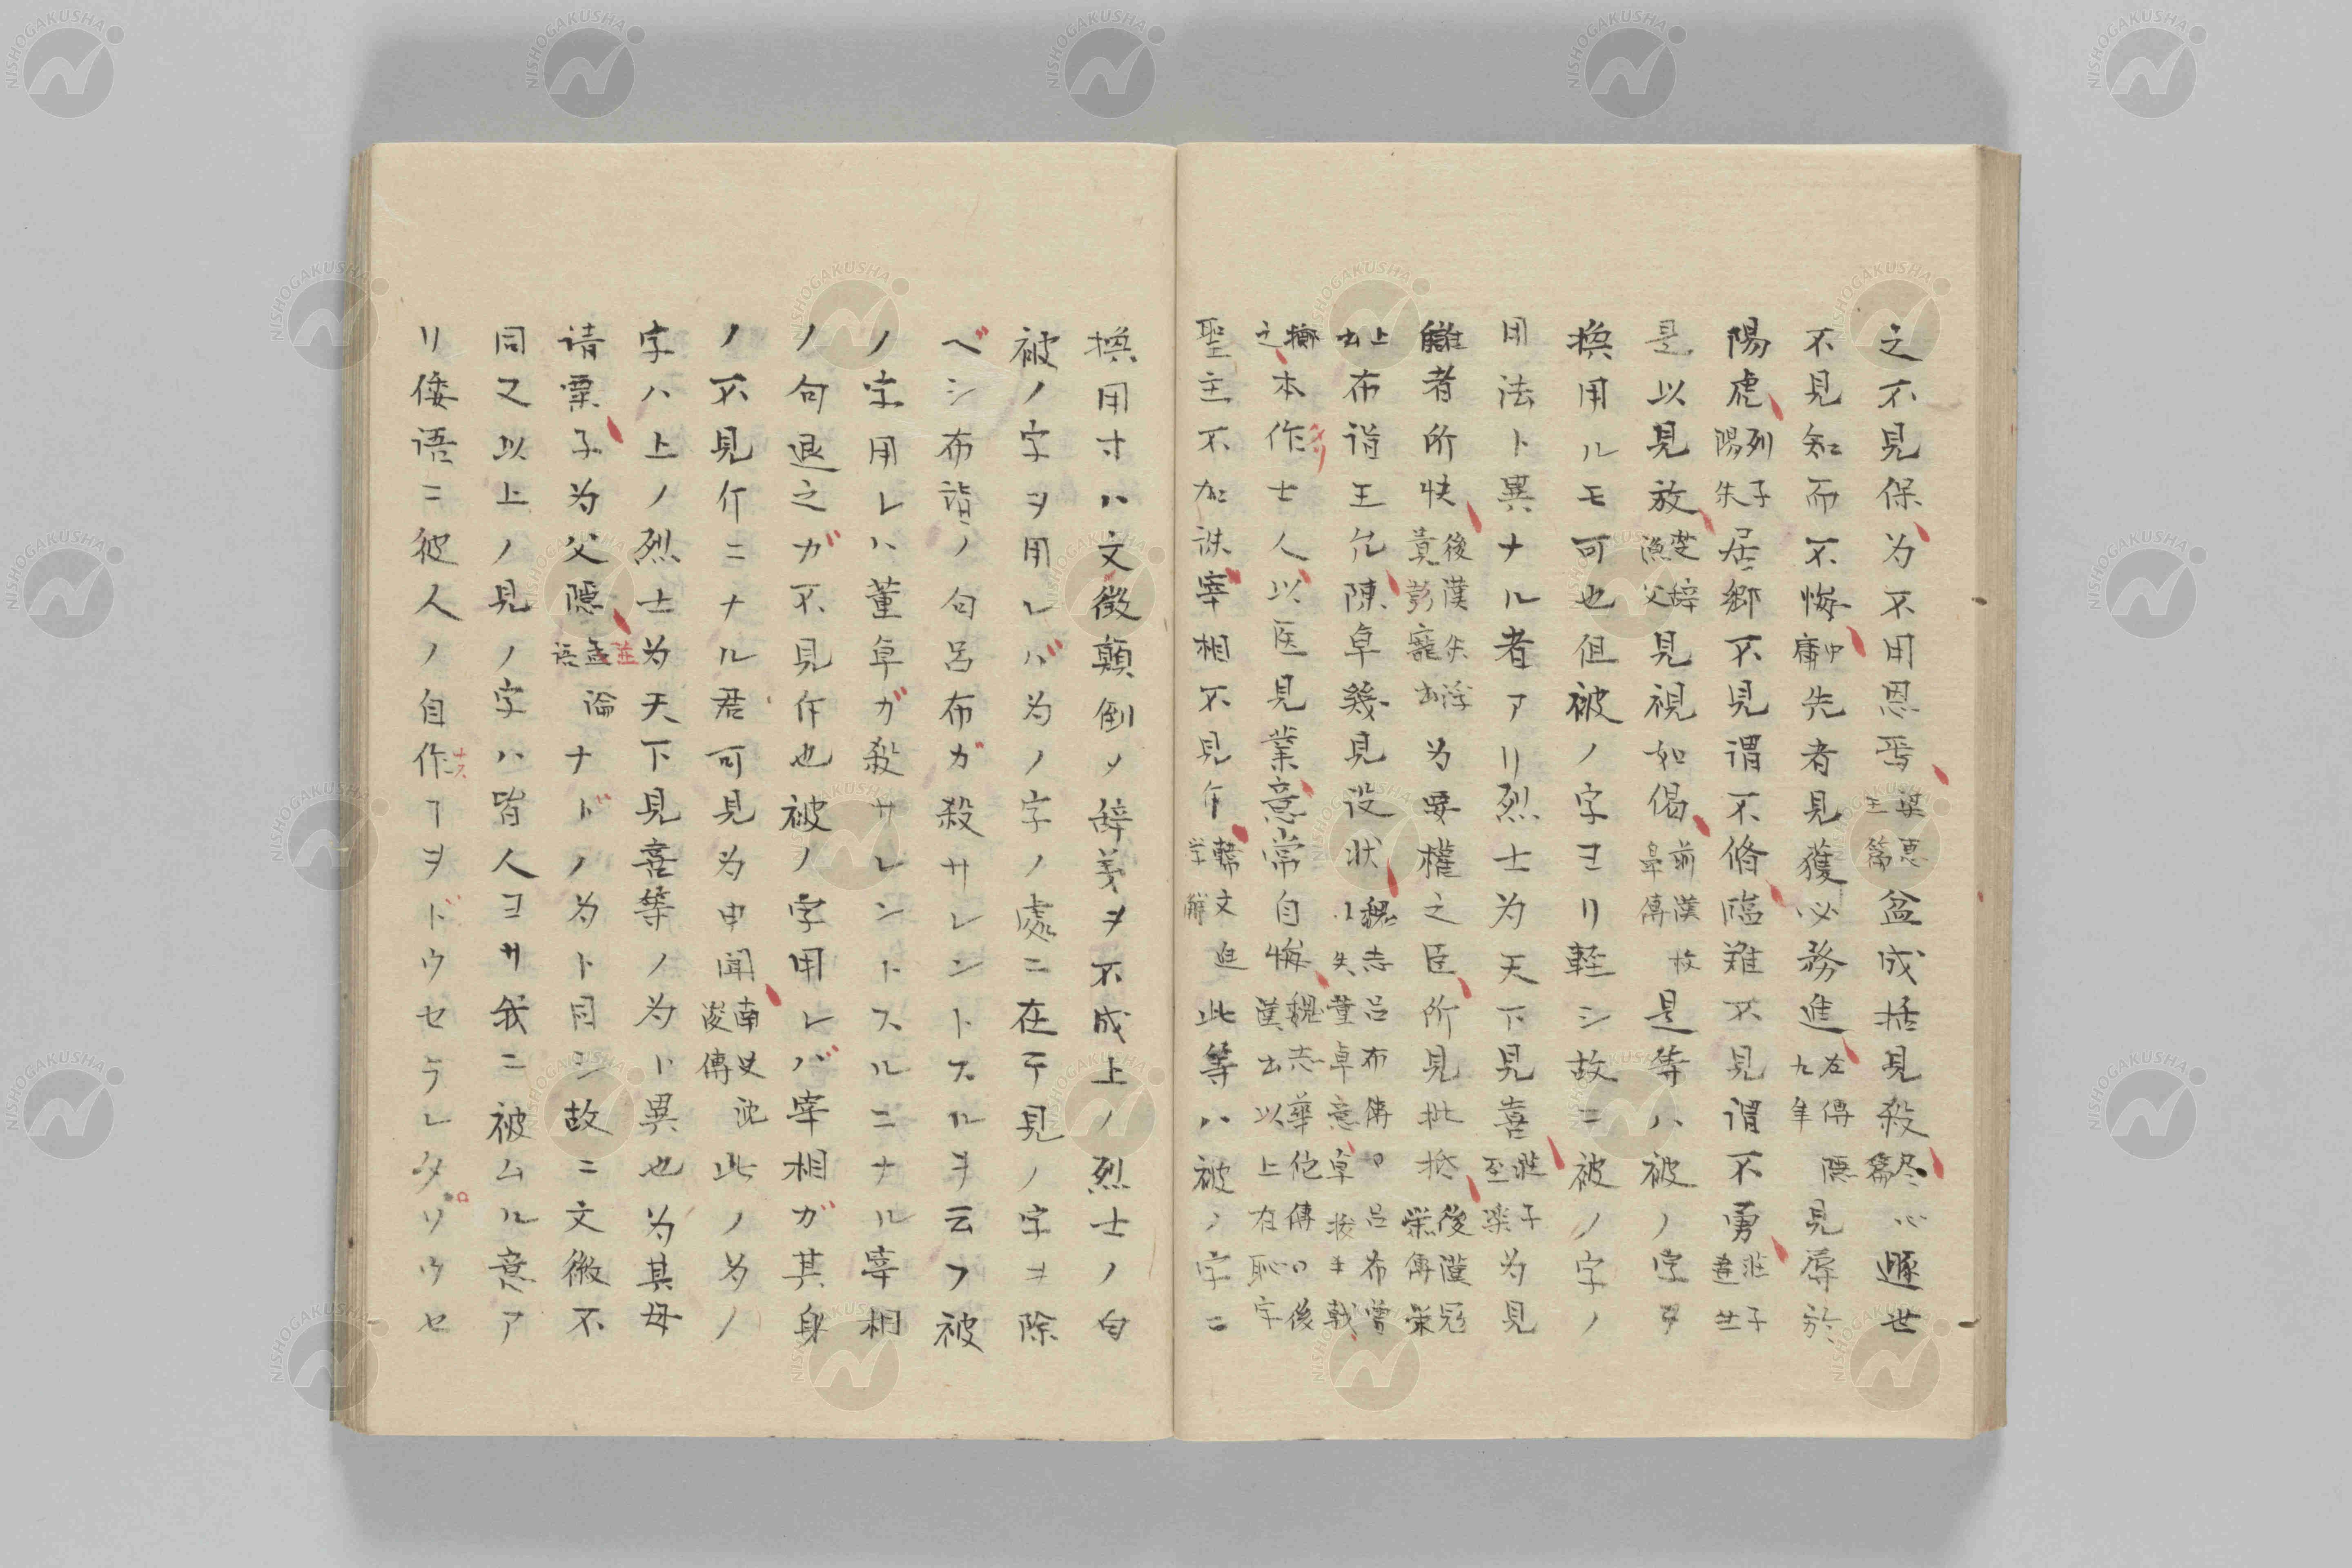 之不見保为不用恩焉梁惠王篇盆成括見殺尽心篇遯世
不見知而不悔中庸先者見獲必務進左傳隱九年見辱於
陽虎列子陽朱居鄉不見謂不脩臨難不見謂不勇莊子達生
是以見放楚辞漁父見視如倡前漢枚皐傳是等ハ被ノ字ヲ
換用ルモ可也但被ノ字ヨリ軽シ故ニ被ノ字ノ
用法ト異ナル者アリ烈士为天下見喜莊子至楽为見
讎者所快後漢朱浮為要權之臣所見批抵後漢寇栄傳
布詣王允陳卓幾見殺状魏志呂布傳
本作士人以医見業意常自悔魏志華佗傳
聖主不加誅宰相不見斥韓文進学解此等ハ被ノ字ニ
換用寸ハ文徴顛倒ノ辞義ヲ不成上ノ烈士ノ句
被ノ字ヲ用レバ为ノ字ノ處ニ在テ見ノ字ヨ除
ベシ布詣ノ句呂布ガ殺サレントスルヿ云フ被
ノ字用レハ董卓ガ殺サレントスルニナル宰相
ノ句退之ガ不見斥也被ノ字用レバ宰相ガ其身
ノ不見斥ニナル君可見为申聞南史沈浚傳此ノ为ノ
字ハ上ノ烈士为天下見喜等ノ为ト異也为其母
请粟子为父隱孟論語ナドノ为ト同シ故ニ文徴不
同又以上ノ見ノ字ハ皆人ヨサ我ニ被ムル意ア
リ倭语ニ彼人ノ自作ナスヿヲドウセラレタソウセ